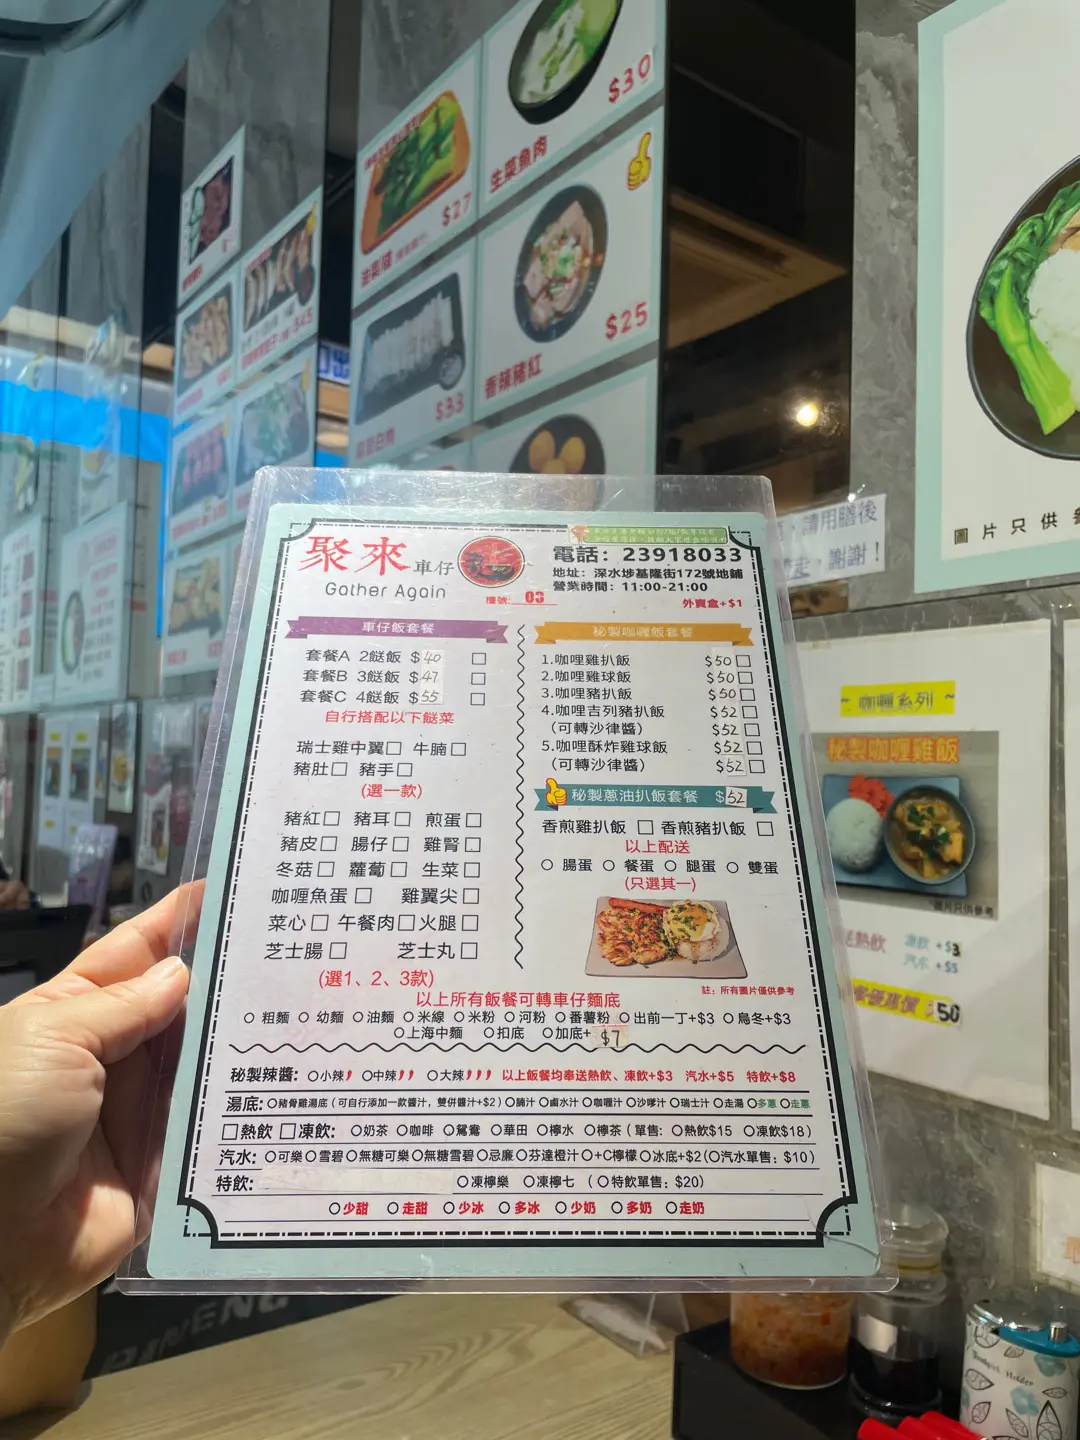 $30
生菜魚肉
$27
油菜
$25
香辣豬紅
$33
$45
請用膳後
走，謝謝！
圖片只供
聚來車仔
Gather Again
電話：23918033
地址：深水埗基隆街172號地鋪
營業時間：11:00-21:00
檯號: 03
外賣盒+$1
車仔飯套餐
套餐A 2餸飯 $40
套餐B 3餸飯 $47
套餐C 4餸飯 $55
自行搭配以下餸菜
瑞士雞中翼 牛腩
豬肚 豬手
(選一款)
豬紅 豬耳 煎蛋
豬皮 腸仔 雞腎
冬菇 蘿蔔 生菜
咖哩魚蛋 雞翼尖
菜心 午餐肉 火腿
芝士腸 芝士丸
(選1、2、3款)
秘製咖喱飯套餐
1.咖哩雞扒飯 $50
2.咖哩雞球飯 $50
3.咖哩豬扒飯 $50
4.咖哩吉列豬扒飯 $52
(可轉沙律醬) $52
5.咖哩酥炸雞球飯 $52
(可轉沙律醬) $52
秘製蔥油扒飯套餐 $52
香煎雞扒飯 香煎豬扒飯
以上配送
腸蛋 餐蛋 腿蛋 雙蛋
(只選其一)
註：所有圖片僅供參考
以上所有飯餐可轉車仔麵底
粗麵 幼麵 油麵 米線 米粉 河粉 番薯粉 出前一丁+$3 烏冬+$3
上海中麵 扣底 加底+ $7
秘製辣醬: 小辣 中辣 大辣 以上飯餐均奉送熱飲、凍飲+$3 汽水+$5 特飲+$8
湯底: 豬骨雞湯底 (可自行添加一款醬汁，雙併醬汁+$2) 腩汁 鹵水汁 咖喱汁 沙嗲汁 瑞士汁 走湯 多蔥 走蔥
熱飲 凍飲: 奶茶 咖啡 鴛鴦 華田 檸水 檸茶 (單售: 熱飲$15 凍飲$18)
汽水: 可樂 雪碧 無糖可樂 無糖雪碧 忌廉 芬達橙汁 +C檸檬 冰底+$2 (汽水單售: $10)
特飲: 凍檸樂 凍檸七 (特飲單售: $20)
少甜 走甜 少冰 多冰 少奶 多奶 走奶
~ 咖喱系列 ~
秘製咖喱雞飯
圖片只供參考
送熱飲 凍飲+$3
汽水+$5
$50